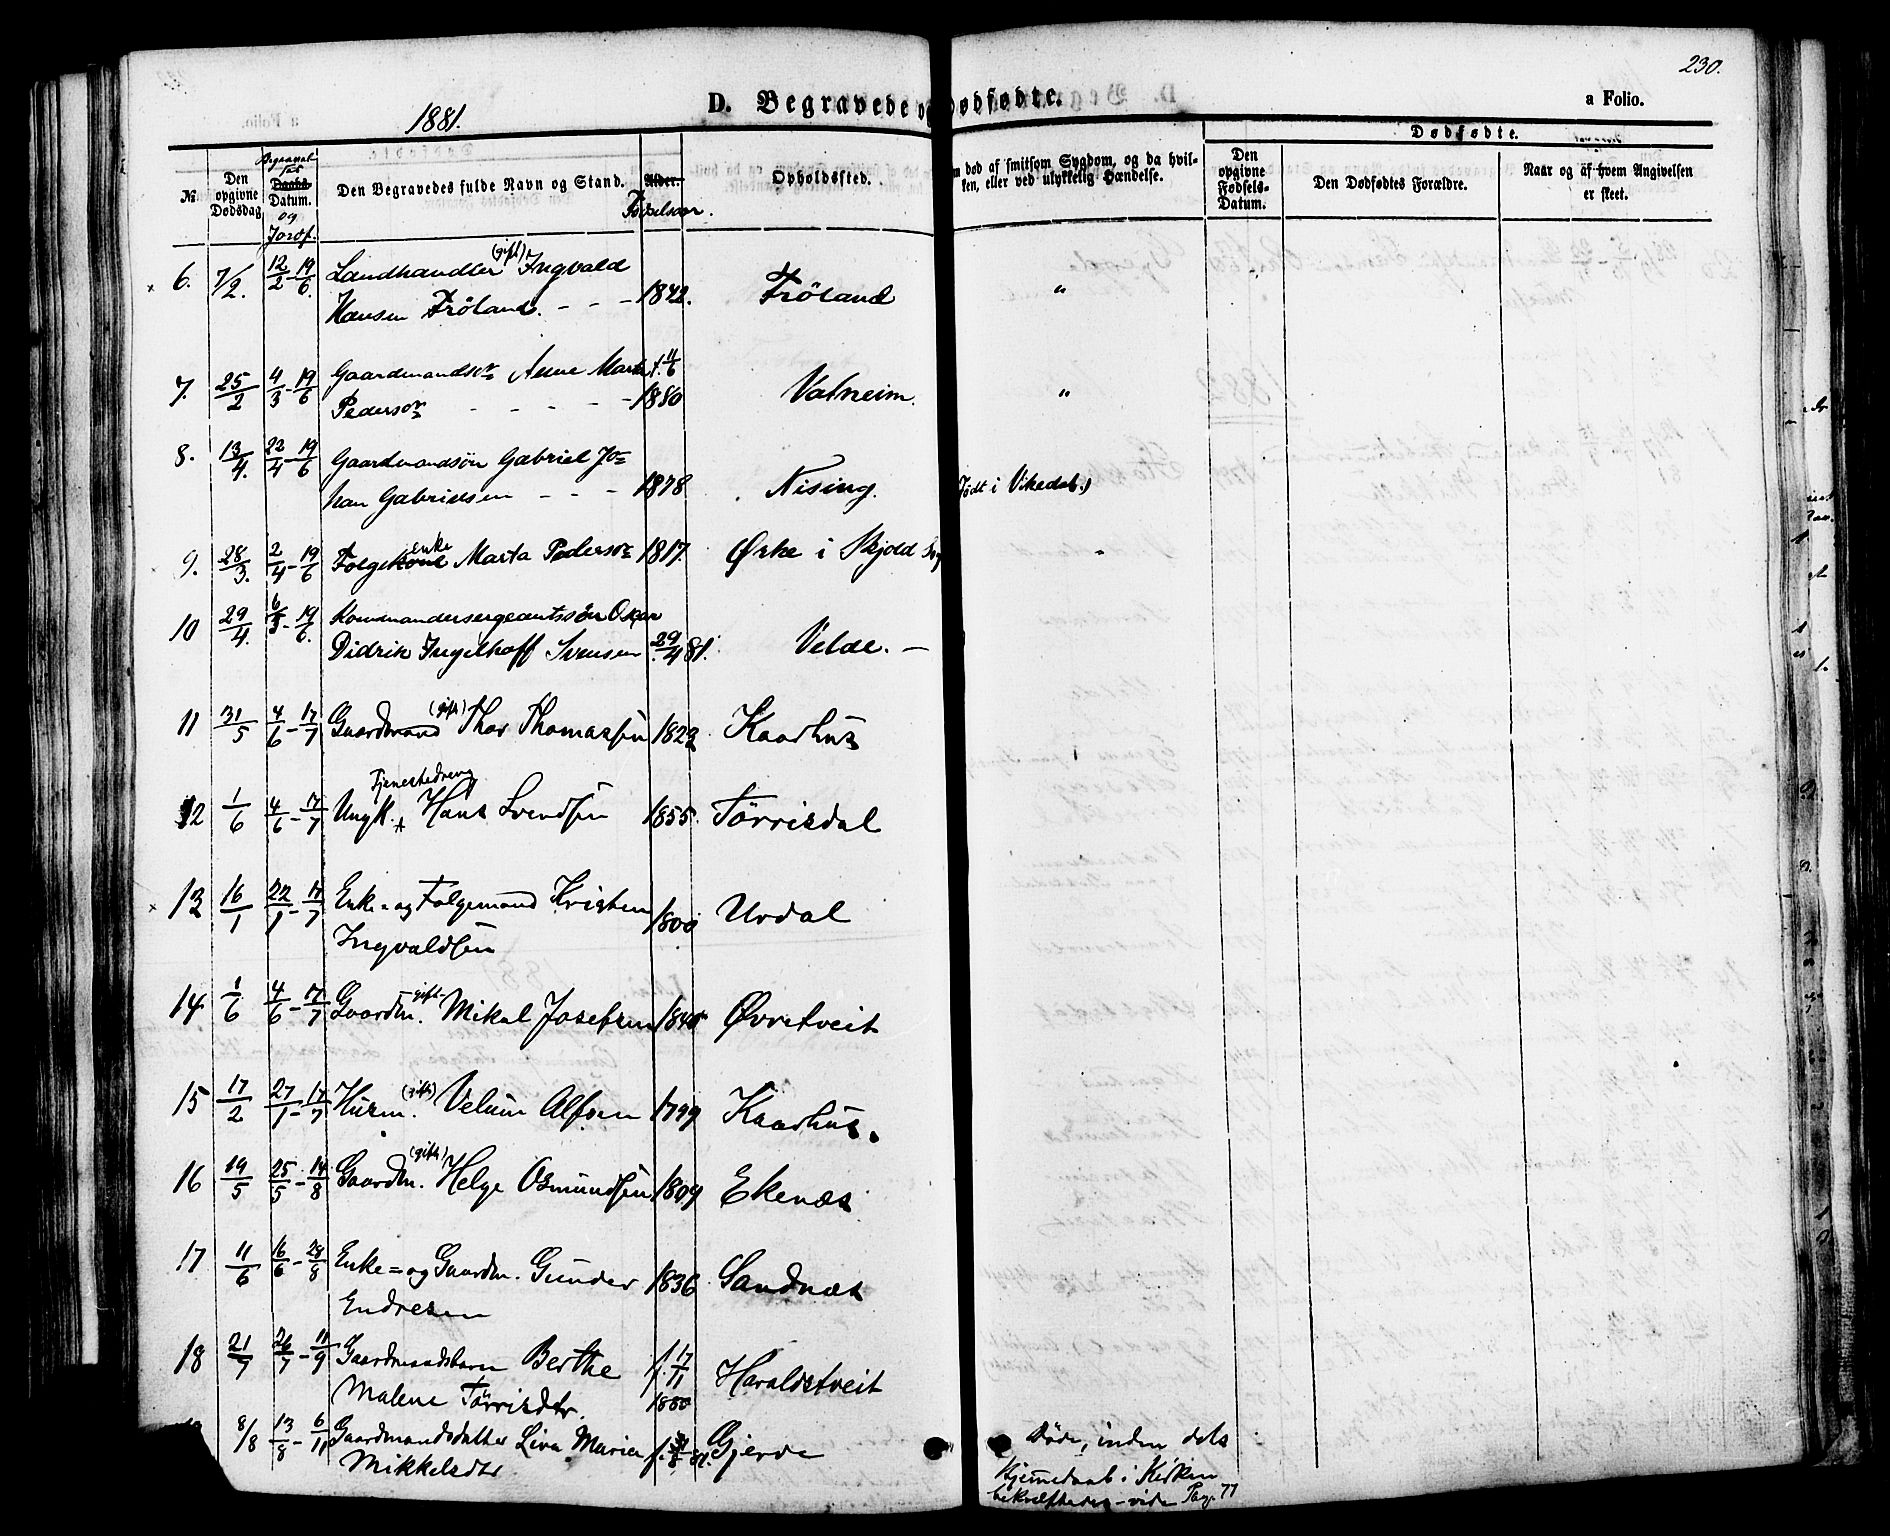 230.
1881.
D. Begravede o dødfødte.
a Folio.
Dødfødte.
№
Den opgivne Dødsdag.
Begravet
Daabs Datum.
og
Jordf.
Den Begravedes fulde Navn og Stand.
Alder.
Fødselsaar.
Opholdssted.
m død af smitsom Sygdom, og da hvil-
ken, eller ved ulykkelig Hændelse.
Den opgivne Fødsels-Datum.
Den Dødfødtes Forældre.
Naar og af hvem Angivelsen er skeet.
6. 7/2. 12/2 - 19/6. Landhandler (gift) Ingvald
Hansen Frøland. - - - 1842. Frøland "
7. 25/2 4/3 - 19/6 Gaardmandsdr Anne Marta f. 11/6
Pedersdr - - - - - 1880 Vatneim. "
8. 13/4. 22/4 - 19/6 Gaardmandsøn Gabriel Jo=
han Gabrielsen - - - 1878 Nising. Født i Vikedal.)
9. 28/3. 2/4 - 19/6 Folgekone enke Marta Pedersdr 1817. Ørke i Skjold
10 29/4. 6/5 - 19/6. Kommandersergeantssøn Oskar
Didrik Ingelhoff Svensen 29/4 81. Velde. -
11 31/5 4/6 - 17/7 Gaardmand (gift) Thor Thomassen 1823 Kaarhus
12 1/6 4/6 - 17/7 Ungk. Tjenestedreng Hans Svendsen 1855. Tørrisdal
13 16/1 22/1 - 17/7 Enke- og Folgemand Kristen
Ingvaldsen 1800 Urdal
14 1/6 4/6 - 17/7 Gaardm. gift Mikal Josefsen 1840 Øvretveit
15 17/2 27/1 - 17/7 Husm. (gift) Velum Alfsen 1799 Kaarhus.
16 19/5 25/5 - 14/8 Gaardm. (gift) Helge Osmundsen 1809 Ekenæs
17 11/6 16/6 - 28/8 Enke= og Gaardm. Gunder
Endresen 1836 Sandnæs
18 21/7 26/7 - 11/9 Gaardmandsbarn Berthe
Malene Tørrisdtr. f. 17/11 1880 Haraldstveit
8/8 13/8 - 6/11 Gaardmandsdatter Liva Maria
Mikkelsdtr Gjerde
Døde, inden dets
Hjemmedaab i Kirken
bekræftedes - vide Pag. 77